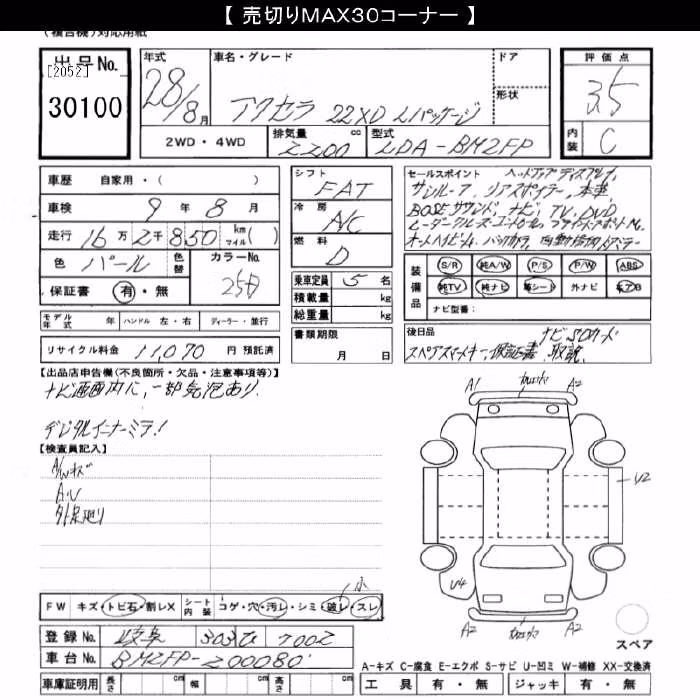 【 売切りMAX30コーナー 】
(複合機)対応用紙
出品No.
[2052]
30100
年式
28/8月
車名・グレード
アクセラ 22XD Lパッケージ
ドア
形状
評価点
3.5
内装
C
2WD・4WD
排気量 cc
2200
型式
LDA-BM2FP
車歴 自家用・( )
車検 9年 8月
走行 16万2千850 km マイル( )
色 パール
色替
カラーNo.
25D
保証書 有・無
シフト
FAT
冷房
A/C
燃料
D
乗車定員 5名
積載量 kg
総重量 kg
セールスポイント ヘッドアップディスプレイ,
サンルーフ, リアスポイラー, 本革,
BOSEサウンド, ナビ, TV, DVD
レーダークルーズコントロール,
オートハイビーム, バックカメラ,
装備品
S/R
純A/W
P/S
P/W
ABS
純TV
純ナビ
革シート
外ナビ
エアB
ナビ型番:
モデル年式 年
ハンドル 左・右
ディーラー・並行
リサイクル料金 11,070 円 預託済
書類期限
月 日
後日品
ナビSDカード
スペアスマートキー, 保証書, 取説
【出品店申告欄(不良箇所・欠品・注意事項等)】
ナビ画面内に、一部気泡あり.
デジタルインナーミラー!
【検査員記入】
A/Wキズ
A.U
外足廻り
FW キズ・トビ石・割レX
シート内装 コゲ・穴・汚レ・シミ・破レ・スレ
小
登録No. 岐阜 303 ひ 7002
車台No. BM2FP-200080
車庫証明用 長さ cm 幅 cm 高さ cm
A1
A2
U2
U4
A2
A2
スペア
A-キズ C-腐食 E-エクボ S-サビ U-凹ミ W-補修 XX-交換済
工具 有・無 ジャッキ 有・無